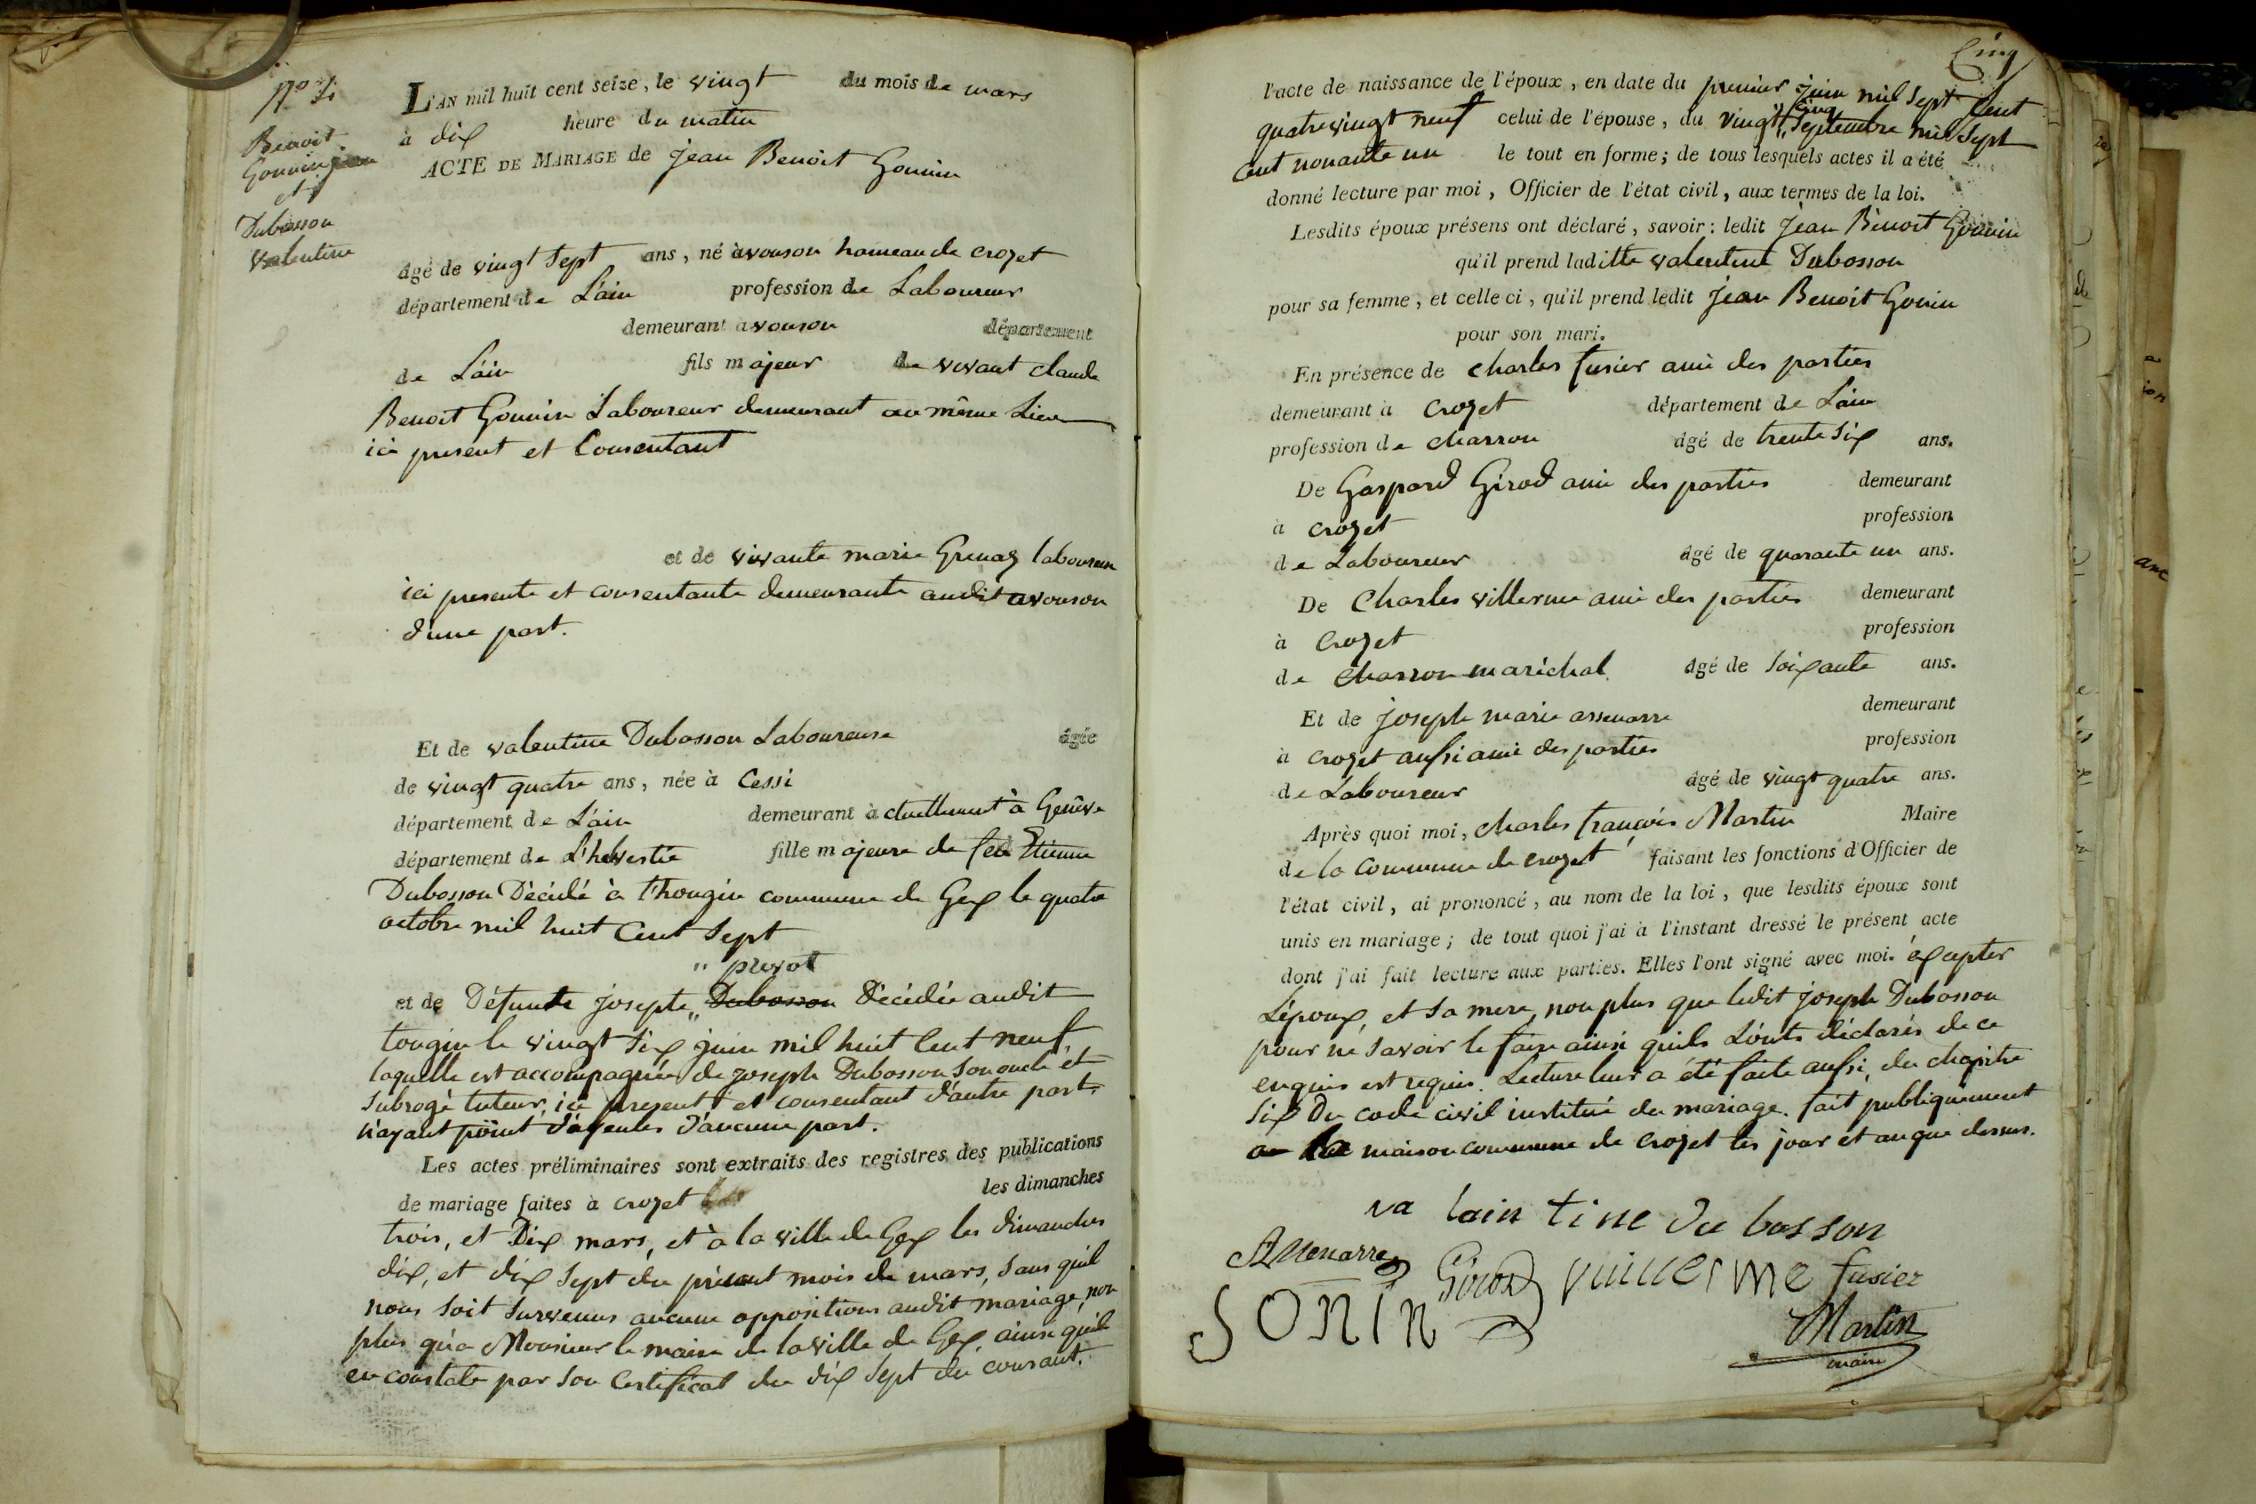 Benoit
Gonnin jean
et
Dubosson
valentine
L'AN mil huit cent seize, le vingt du mois de mars
à dix heure du matin
ACTE DE MARIAGE de jean Benoit Gonnin
âgé de vingt sept ans, né à vouson hameau de crozet
département de L'ain profession de Laboureur
demeurant a vouson département
de L'ain fils majeur de vivant claude
Benoit Gonnin Laboureur demeurant au même Lieu
ici present et Consentant
et de vivante marie Grenaz laboureuse
ici presente et consentante demeurante audit avouson
d'une part.
Et de valentine Dubosson Laboureuse âgée
de vingt quatre ans, née à Cessi
département de L'ain demeurant actuellement à Genêve
département de L'helvestie fille majeure de feu Etienne
Dubosson Décédé à Thougin commune de Gex le quatre
octobre mil huit Cent Sept
" prevot
et de Défunte josepte " Dubosson Décédée audit
tougin le vingt Six juin mil huit Cent neuf
laquelle est accompagnée de joseph Dubosson Son oncle et
Subrogé tuteur, ici present et consentant d'autre part.
n'ayant point d'ayeules d'aucune part.
Les actes préliminaires sont extraits des registres des publications
de mariage faites à crozet les dimanches
trois, et Dix mars, et à la ville de Gex les dimanches
dix, et dix Sept du présent mois de mars, Sans qu'il
nous Soit Survenus aucune oppositions audit mariage, non
plus qu'a Monsieur le maire de la ville de Gex, ainsi qu'il
en constate par Son Certificat du dix Sept du courant.
Cinq
l'acte de naissance de l'époux, en date du premier juin mil Sept Cent
quatre vingt neuf celui de l'épouse, du vingt " Cinq Septembre mil Sept
Cent nonante un le tout en forme; de tous lesquels actes il a été
donné lecture par moi, Officier de l'état civil, aux termes de la loi.
Lesdits époux présens ont déclaré, savoir: ledit Jean Benoit Gonnin
qu'il prend laditte valentine Dubosson
pour sa femme, et celle ci, qu'il prend ledit Jean Benoit Gonin
pour son mari.
En présence de charles fusier ami des parties
demeurant à Crozet département de L'ain
profession de charron âgé de trente Six ans.
De Gaspard Girod ami des parties demeurant
à crozet profession
de Laboureur âgé de quarante un ans.
De Charles villerme ami des parties demeurant
à Crozet profession
de Charron maréchal âgé de Soixante ans.
Et de joseph marie assenarre demeurant
à crozet aussi ami des parties profession
de Laboureur âgé de vingt quatre ans.
Après quoi moi, charles françois Martin Maire
de la Commune de crozet faisant les fonctions d'Officier de
l'état civil, ai prononcé, au nom de la loi, que lesdits époux sont
unis en mariage; de tout quoi j'ai à l'instant dressé le présent acte
dont j'ai fait lecture aux parties. Elles l'ont signé avec moi. éxcepter
L'époux, et Sa mere, non plus que ledit joseph Dubosson
pour ne Savoir le faire ainsi qu'ils L'onts déclarés de ce
enquis est requis. Lecture leur a été faite aussi, du chapitre
Six Du code civil institué du mariage. fait publiquement
a la maison commune de crozet les jour et an que dessus.
va lain tine du bosson
Assenarre Girod vuillerme fusier
GONIN
Martin
maire